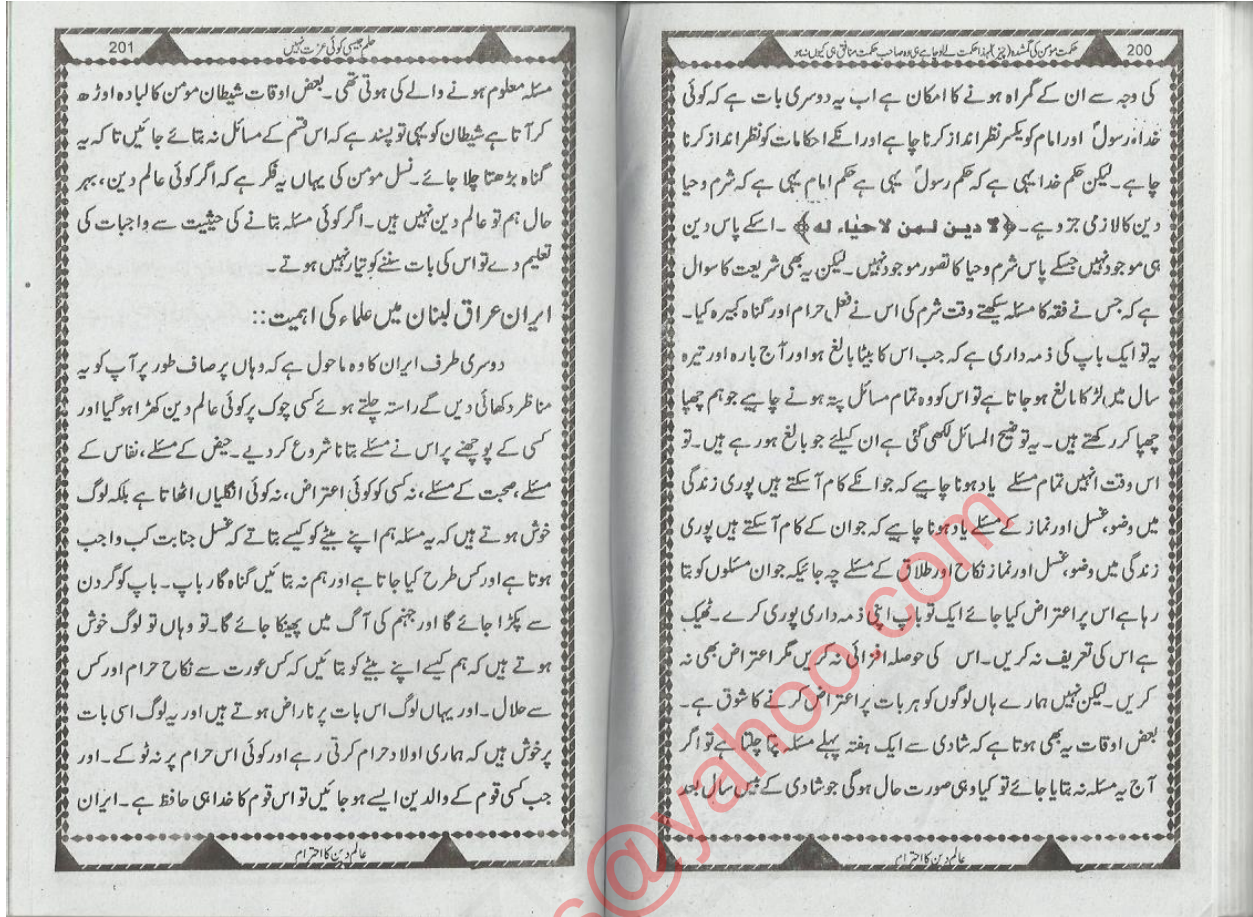 200
حکمت مومن کی گمشدہ (چیز) لہٰذا حکمت لے لو چاہے ہی وہ صاحب حکمت منافق ہی کیوں نہ ہو
کی وجہ سے ان کے گمراہ ہونے کا امکان ہے اب یہ دوسری بات ہے کہ کوئی
خدا، رسولؐ اور امام کو یکسر نظر انداز کرنا چاہے اور انکے احکامات کو نظر انداز کرنا
چاہے۔ لیکن حکم خدا یہی ہے کہ حکم رسولؐ یہی ہے حکم امام یہی ہے کہ شرم و حیا
دین کا لازمی جزو ہے۔ ﴿لا دین لمن لا حیاء له﴾ ۔ اسکے پاس دین
ہی موجود نہیں جسکے پاس شرم و حیا کا تصور موجود نہیں۔ لیکن یہ بھی شریعت کا سوال
ہے کہ جس نے فقہ کا مسئلہ سیکھتے وقت شرم کی اس نے فعل حرام اور گناہ کبیرہ کیا۔
یہ تو ایک باپ کی ذمہ داری ہے کہ جب اس کا بیٹا بالغ ہو اور آج بارہ اور تیرہ
سال میں لڑکا بالغ ہو جاتا ہے تو اس کو وہ تمام مسائل پتہ ہونے چاہیے جو ہم چھپا
چھپا کر رکھتے ہیں۔ یہ توضیح المسائل لکھی گئی ہے ان کیلئے جو بالغ ہو رہے ہیں۔ تو
اس وقت انہیں تمام مسئلے یاد ہونا چاہیے کہ جو انکے کام آسکتے ہیں پوری زندگی
میں وضو، غسل اور نماز کے مسئلے یاد ہونا چاہیے کہ جو ان کے کام آسکتے ہیں پوری
زندگی میں وضو، غسل اور نماز نکاح اور طلاق کے مسئلے چہ جائیکہ جو ان مسئلوں کو بتا
رہا ہے اس پر اعتراض کیا جائے ایک تو باپ اپنی ذمہ داری پوری کرے۔ ٹھیک
ہے اس کی تعریف نہ کریں۔ اس کی حوصلہ افزائی نہ کریں مگر اعتراض بھی نہ
کریں۔ لیکن نہیں ہمارے ہاں لوگوں کو ہر بات پر اعتراض کرنے کا شوق ہے۔
بعض اوقات یہ بھی ہوتا ہے کہ شادی سے ایک ہفتہ پہلے مسئلہ پتا چلتا ہے تو اگر
آج یہ مسئلہ نہ بتایا جائے تو کیا وہی صورت حال ہوگی جو شادی کے بیس سال بعد
عالم دین کا احترام
201
حلم جیسی کوئی عزت نہیں
مسئلہ معلوم ہونے والے کی ہوتی تھی۔ بعض اوقات شیطان مومن کا لبادہ اوڑھ
کر آتا ہے شیطان کو یہی تو پسند ہے کہ اس قسم کے مسائل نہ بتائے جائیں تا کہ یہ
گناہ بڑھتا چلا جائے۔ نسل مومن کی یہاں یہ فکر ہے کہ اگر کوئی عالم دین، بہر
حال ہم تو عالم دین نہیں ہیں۔ اگر کوئی مسئلہ بتانے کی حیثیت سے واجبات کی
تعلیم دے تو اس کی بات سننے کو تیار نہیں ہوتے۔
ایران عراق لبنان میں علماء کی اہمیت::
دوسری طرف ایران کا وہ ماحول ہے کہ وہاں پر صاف طور پر آپ کو یہ
مناظر دکھائی دیں گے راستہ چلتے ہوئے کسی چوک پر کوئی عالم دین کھڑا ہو گیا اور
کسی کے پوچھنے پر اس نے مسئلے بتانا شروع کر دیے۔ حیض کے مسئلے، نفاس کے
مسئلے، صحبت کے مسئلے، نہ کسی کو کوئی اعتراض، نہ کوئی انگلیاں اٹھاتا ہے بلکہ لوگ
خوش ہوتے ہیں کہ یہ مسئلہ ہم اپنے بیٹے کو کیسے بتاتے کہ غسل جنابت کب واجب
ہوتا ہے اور کس طرح کیا جاتا ہے اور ہم نہ بتائیں گناہ گار باپ۔ باپ کو گردن
سے پکڑا جائے گا اور جہنم کی آگ میں پھینکا جائے گا۔ تو وہاں تو لوگ خوش
ہوتے ہیں کہ ہم کیسے اپنے بیٹے کو بتائیں کہ کس عورت سے نکاح حرام اور کس
سے حلال۔ اور یہاں لوگ اس بات پر ناراض ہوتے ہیں اور یہ لوگ اسی بات
پر خوش ہیں کہ ہماری اولاد حرام کرتی رہے اور کوئی اس حرام پر نہ ٹوکے۔ اور
جب کسی قوم کے والدین ایسے ہو جائیں تو اس قوم کا خدا ہی حافظ ہے۔ ایران
عالم دین کا احترام
s@yahoo.com